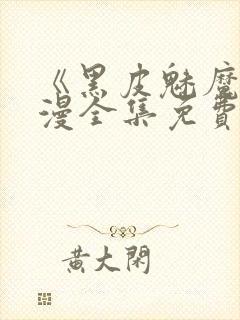 《黑皮魅魔
漫全集免費
黃大閑